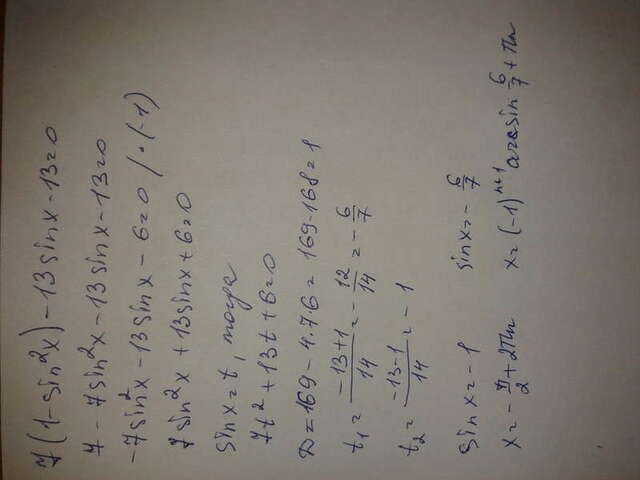 7(1-sin²x)-13sinx-13=0
7-7sin²x-13sinx-13=0
-7sin²x-13sinx-6=0 / ·(-1)
7sin²x+13sinx+6=0
sinx=t, тогда
7t²+13t+6=0
D=169-4·7·6=169-168=1
t₁=(-13+1)/14=-12/14=-6/7
t₂=(-13-1)/14=-1
sinx=-1 sinx=-6/7
x=-π/2+2πn x=(-1)ⁿ⁺¹arcsin 6/7+πn